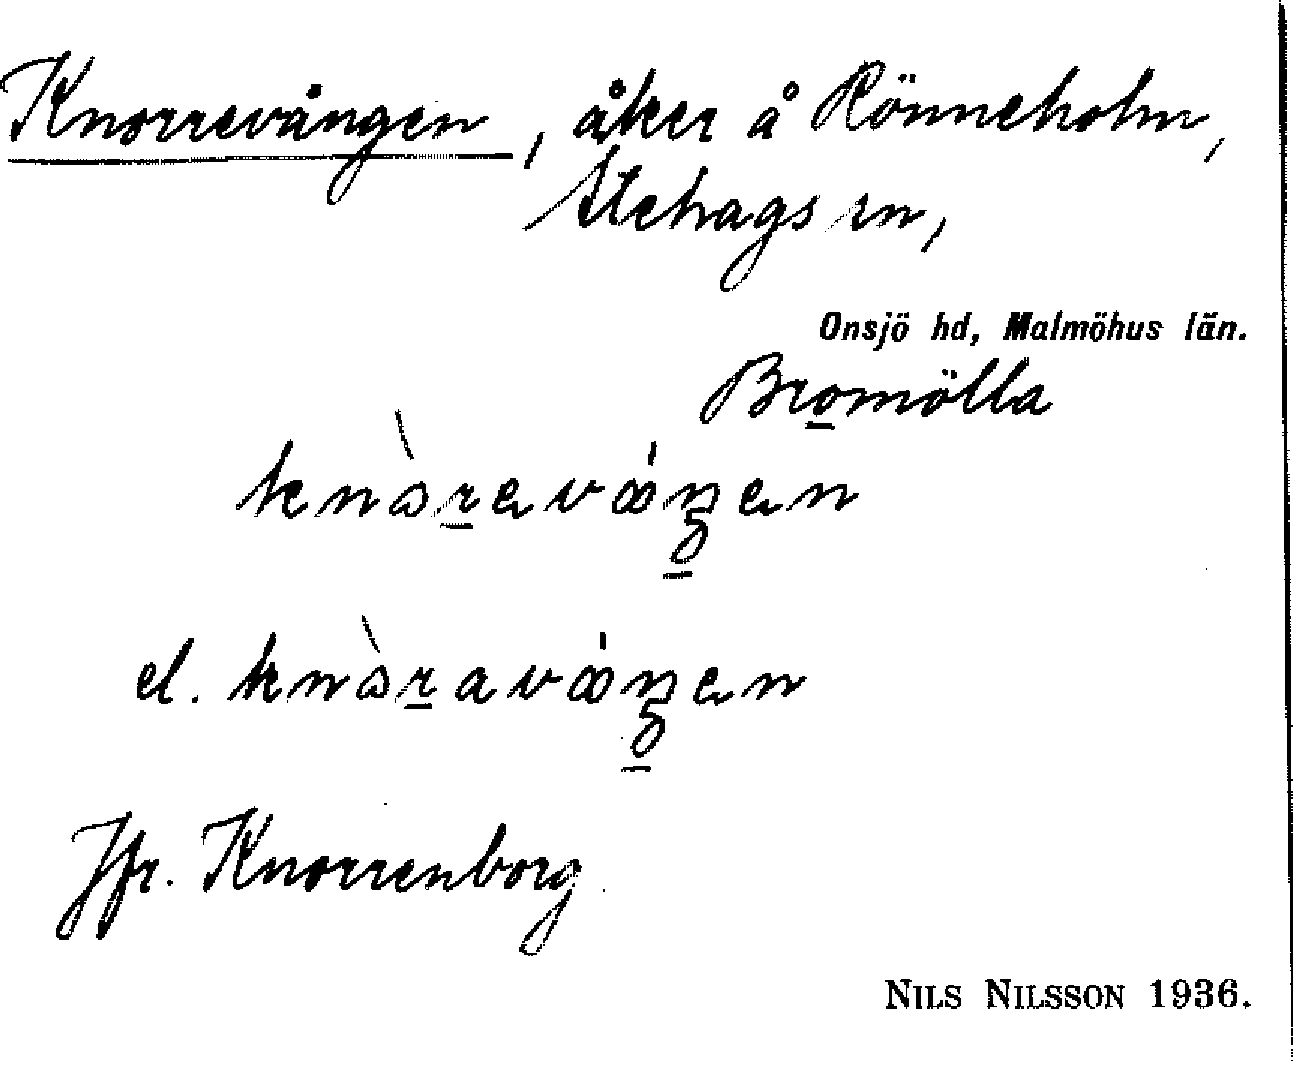 Knorrevången, åker å Rönneholm,
Stehags sn,
Onsjö hd, Malmöhus län.
Bromölla
el.
Jfr. Knorrenborg
NILS NILSSON 1936.